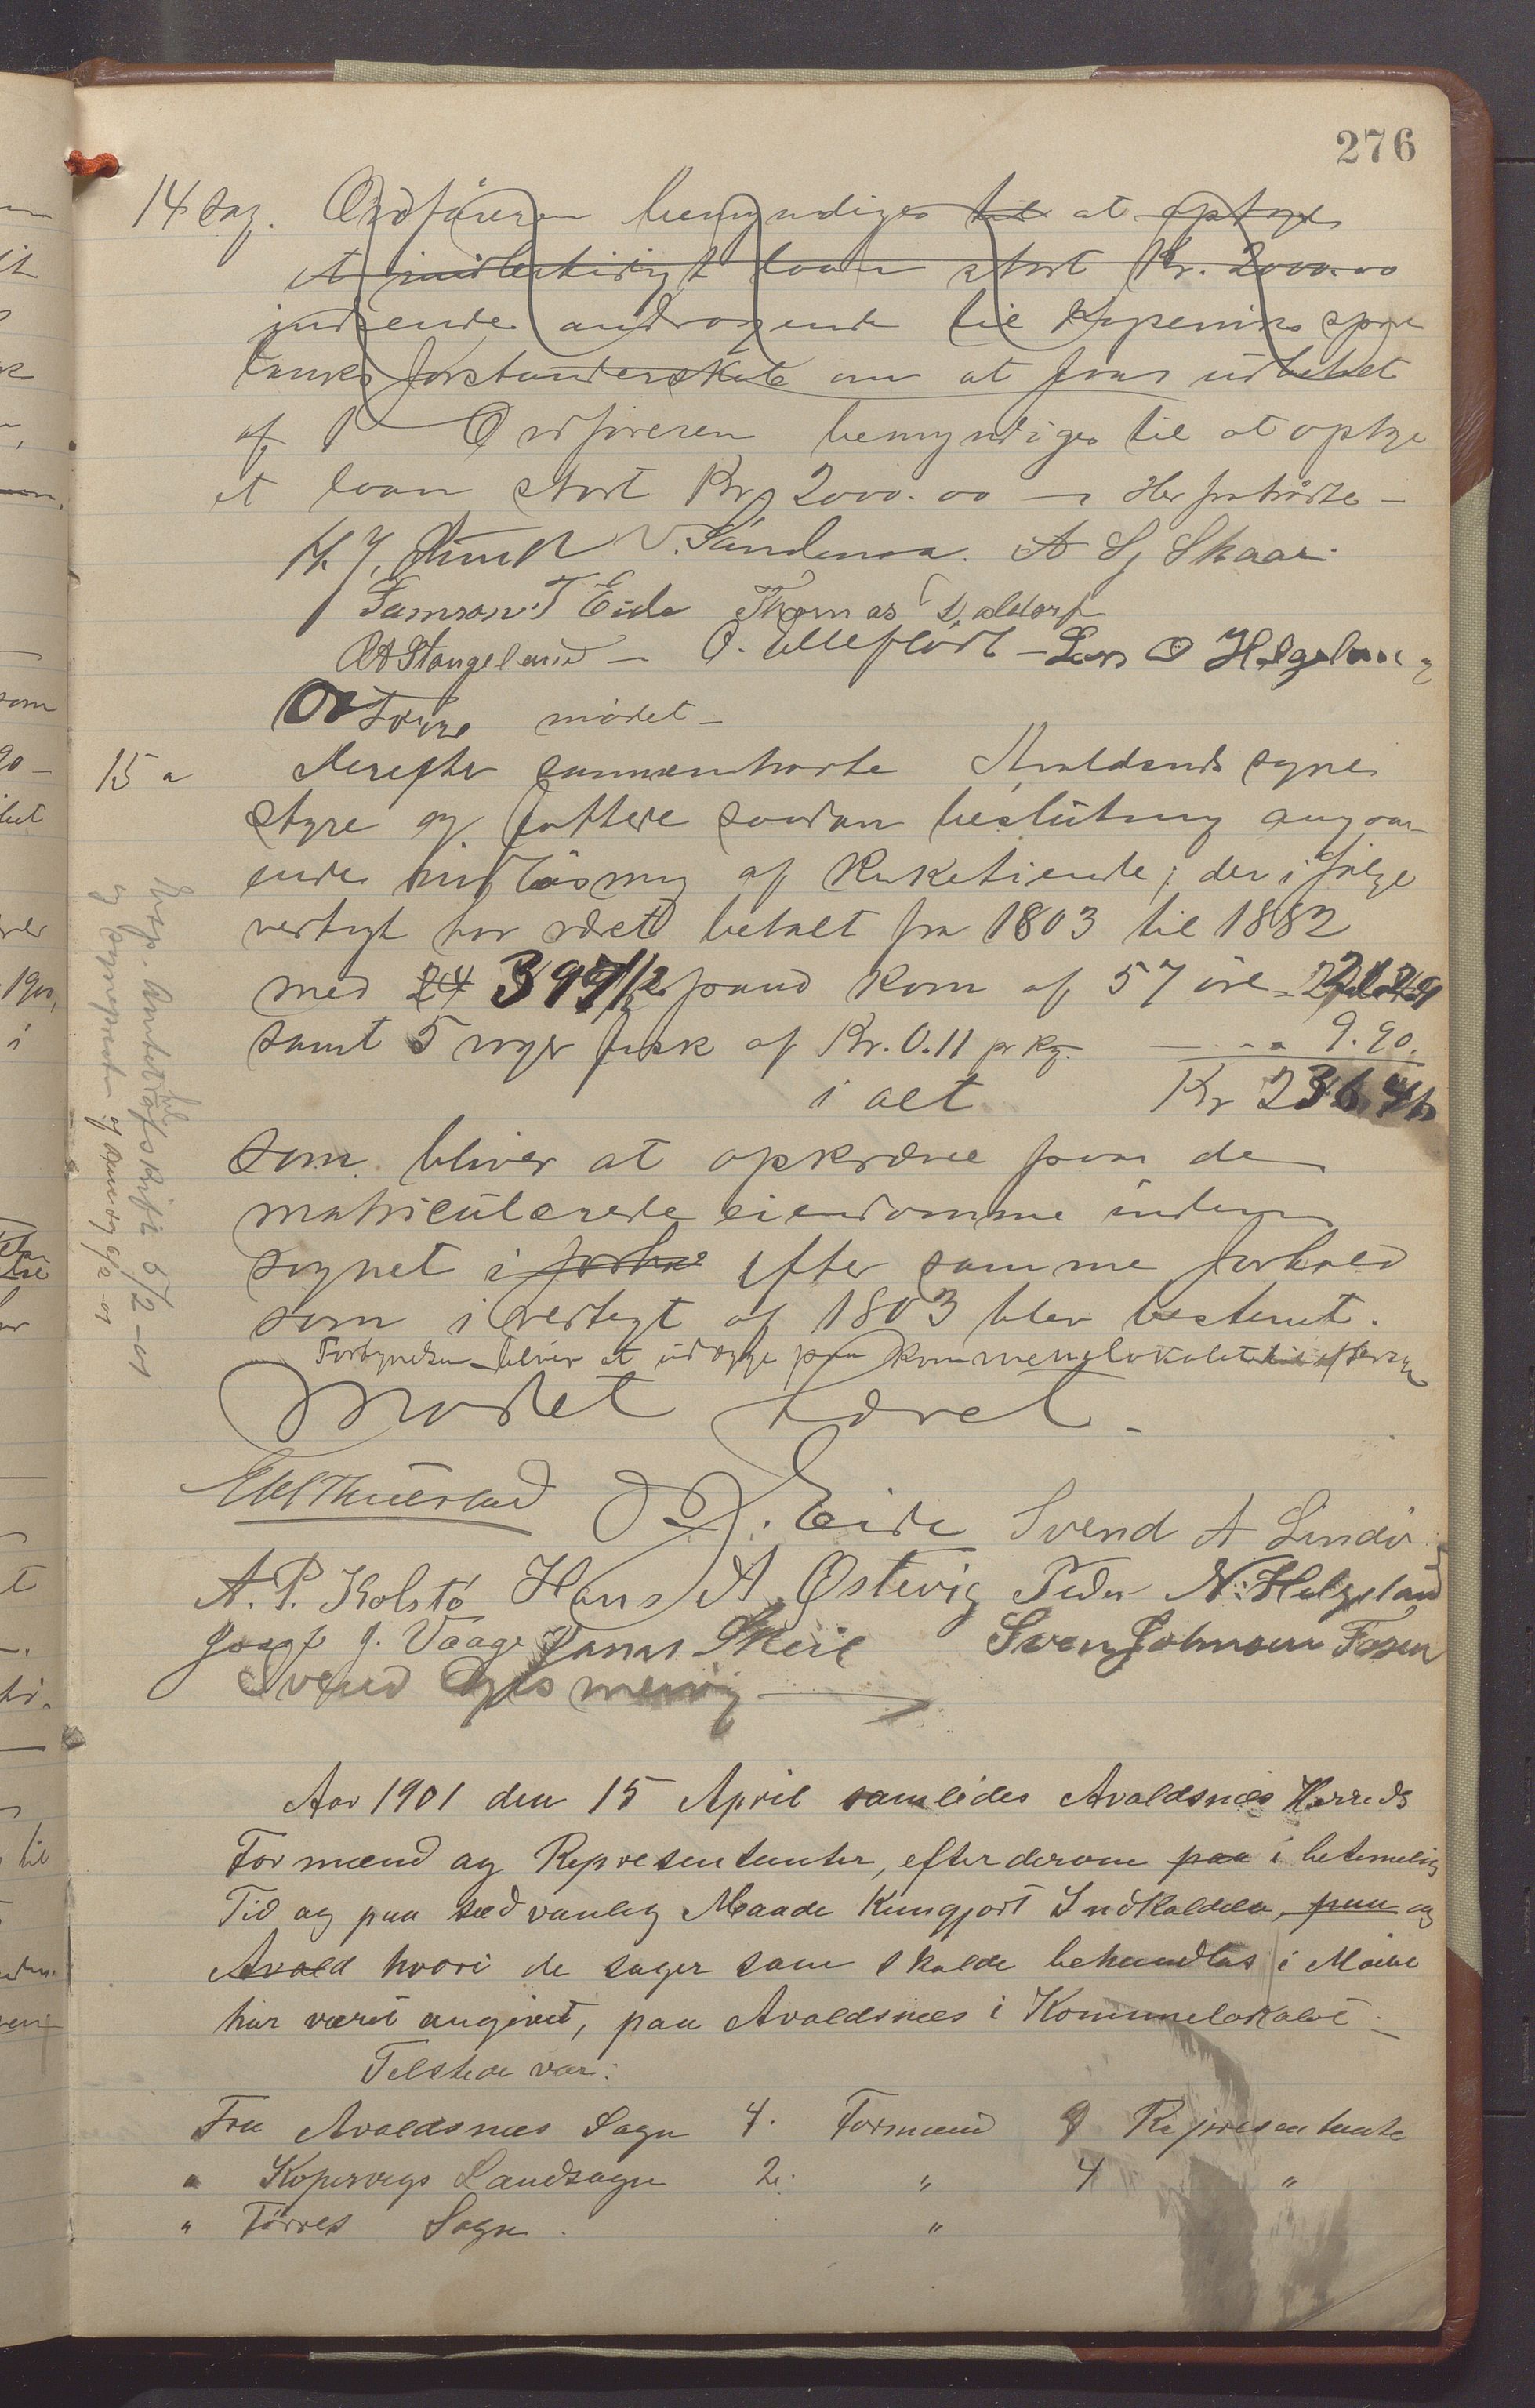 276
14 sag. Ordføreren bemyndiges til at optage
et midlertidigt laan stort Kr. 2000.00
indsende andragende til Kopervik spare
banks forstanderskab om at faa udbetalt
af Ordføreren bemyndiges til at optage
et laan stort Kr 2000.00 — Her fratrådte —
V. Sundenaa. A Sj Skaar.
Samson T Eide Thomas Daldorf
O A Stangeland — O. Ulleflört — Lars O Helgeland
møtet —
15 " Derefter sammentraadte Avaldsnes sogne
styre og fattede saadan beslutning angaa-
ende indløsning af Kirketiende; der i følge
vertegt har været betalt fra 1803 til 1882
med 24 397 1/2 pund korn af 57 øre
samt 5 voger fisk af Kr. 0.11 pr kg. — " " 9.90.
i alt Kr 236.46
som bliver at opkræve paa de
matriculerede eiendomme inden
sognet i forho efter samme forhold
som i vertegt af 1803 blev bestemt.
Fortegnelsen bliver at udlægge paa kommunelokalet til eftersyn
Mødet hævet.
Eide Svend A Lindø
A. P. Kolstö Hans A Østevig Peder N. Helgeland
Josef J. Vaage Jonas Skeie Sven Johnsen Fosen
Svend
Aar 1901 den 15 April samledes Avaldsnes Herreds
Formænd og Representanter, efter derom paa i betimelig
Tid og paa sædvanlig Maade kungjort Indkaldelse, paa og
Avald hvori de sager som skulde behandles i Møde
har været angivet, paa Avaldsnes i Kommunelokalet —
Telstede var:
Fra Avaldsnes Sogn 4. Formænd 9 Representante
" Kopervigs Landsogn 2. " 4 "
" Förres Sogn. "